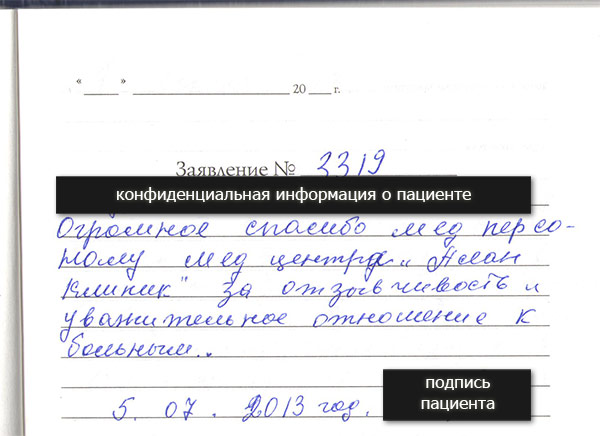 « ____ » ____________ 20 ___ г.
Заявление № 3319
конфиденциальная информация о пациенте
Огромное спасибо мед персо-
налу мед центра „Алан
Клиник" за отзывчивость и
уважительное отношение к
больным..
5. 07. 2013 год.
подпись
пациента